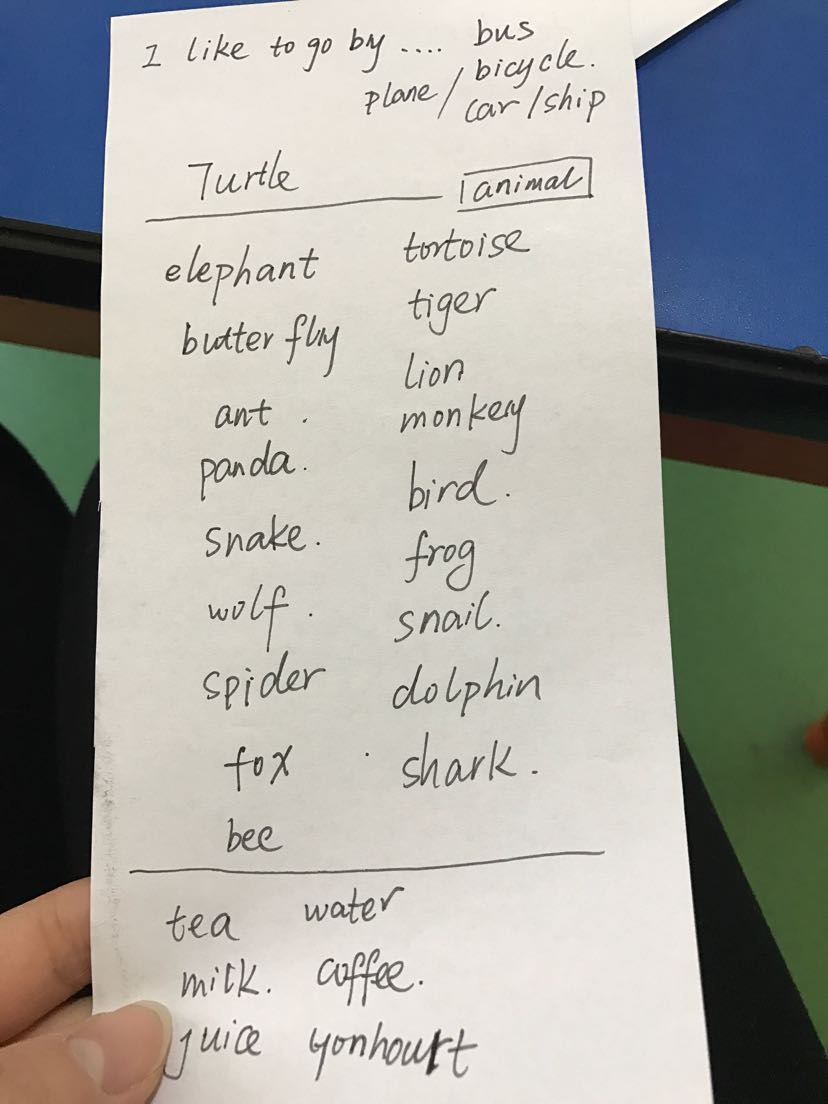 I like to go by .... bus
plane / bicycle.
car / ship
Turtle
animal
elephant tortoise
butterfly tiger
lion
ant . monkey
panda. bird.
snake. frog
wolf . snail.
spider dolphin
fox shark.
bee
tea water
milk. coffee.
juice yonhourt